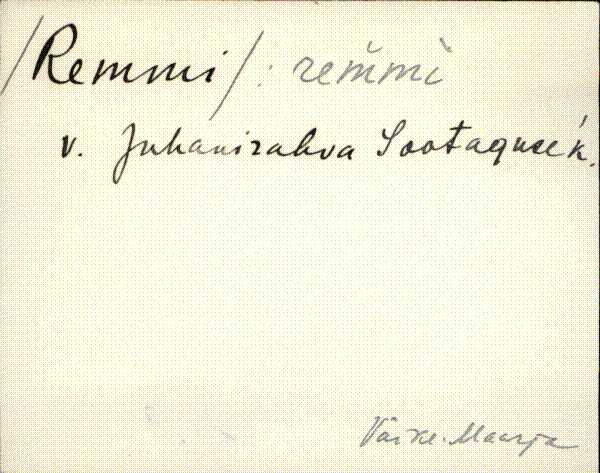 /Remmi/: rem̆mì
v. Juhanirahva Sootaguse k.
Väike-Maarja